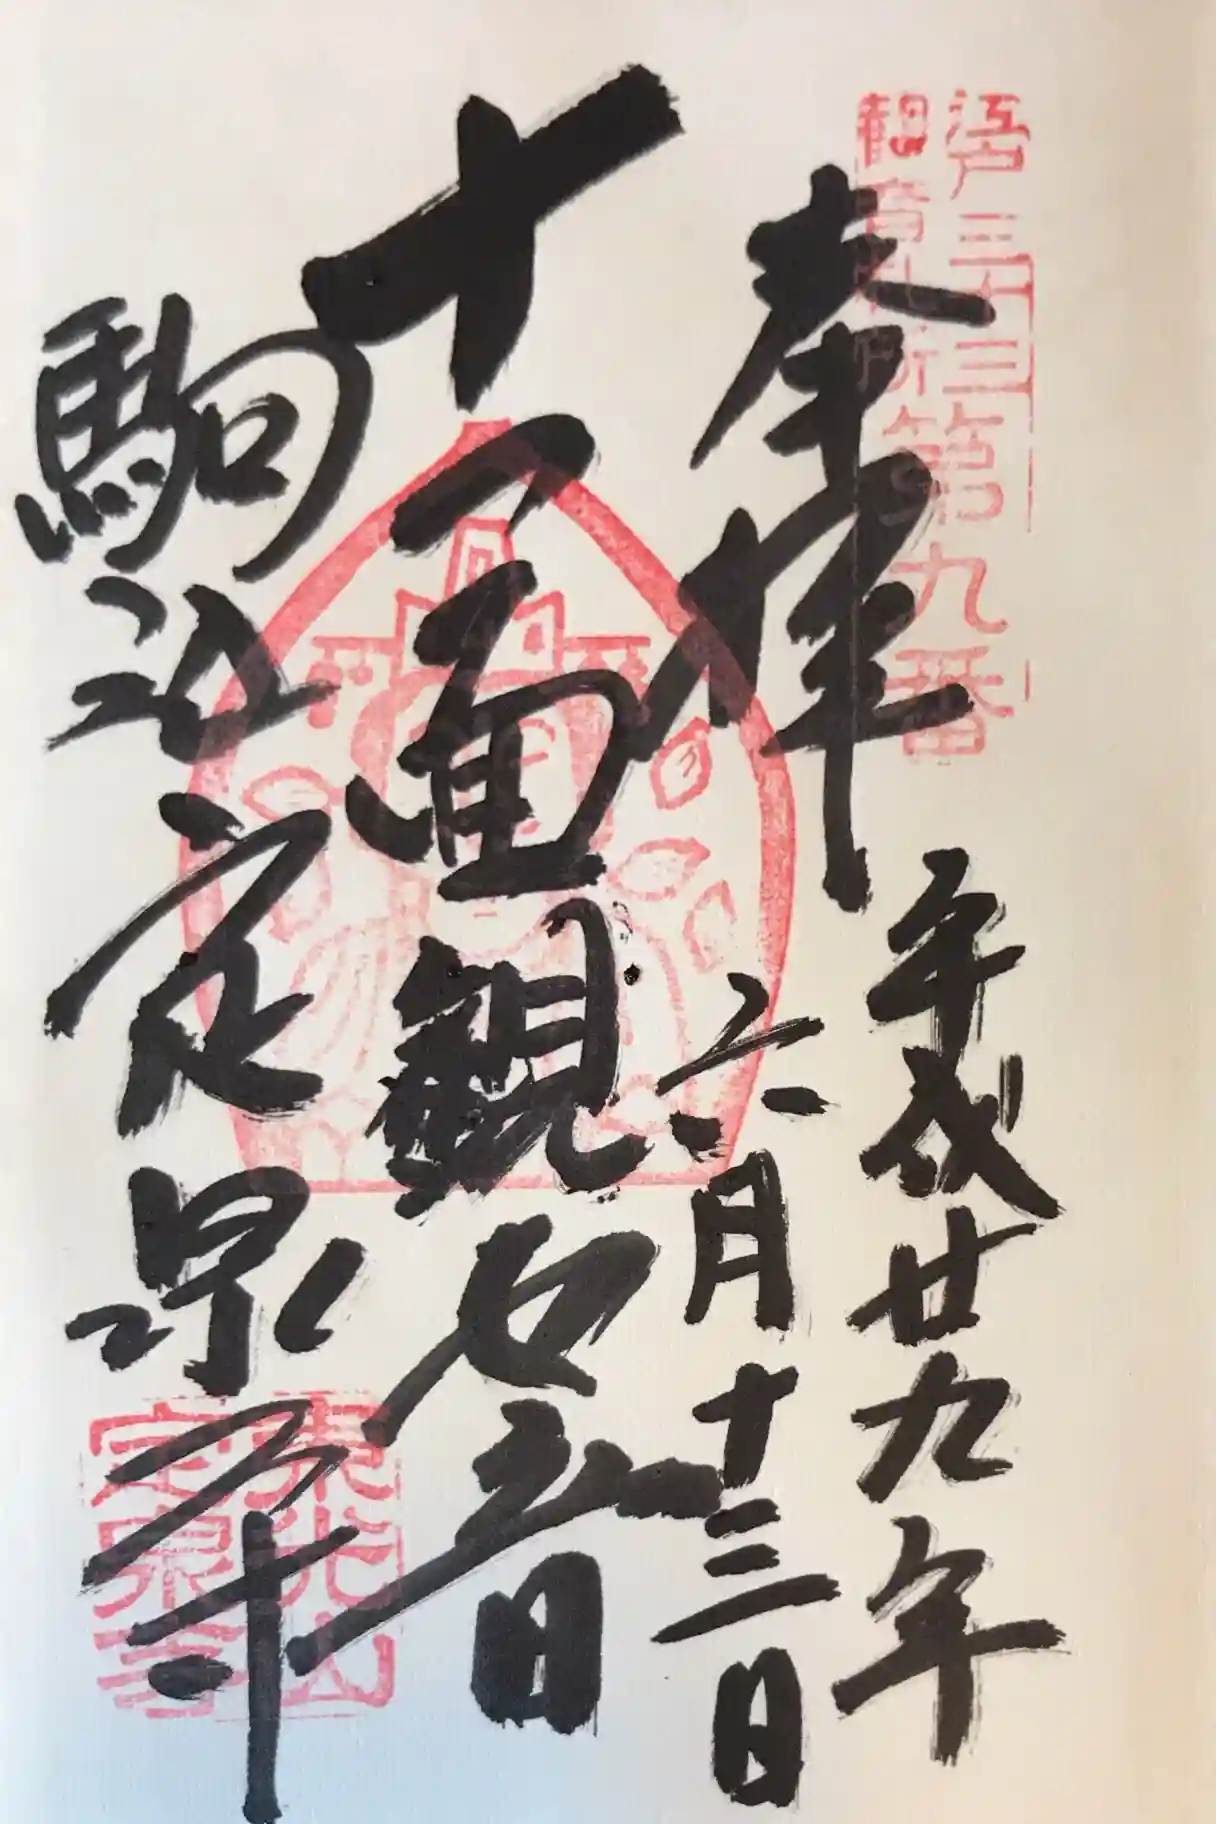 江戸三十三
観音札所
第九番
奉拝
平成廿九年
六月十三日
十一面観世音
駒込定泉寺
東光山
定泉寺